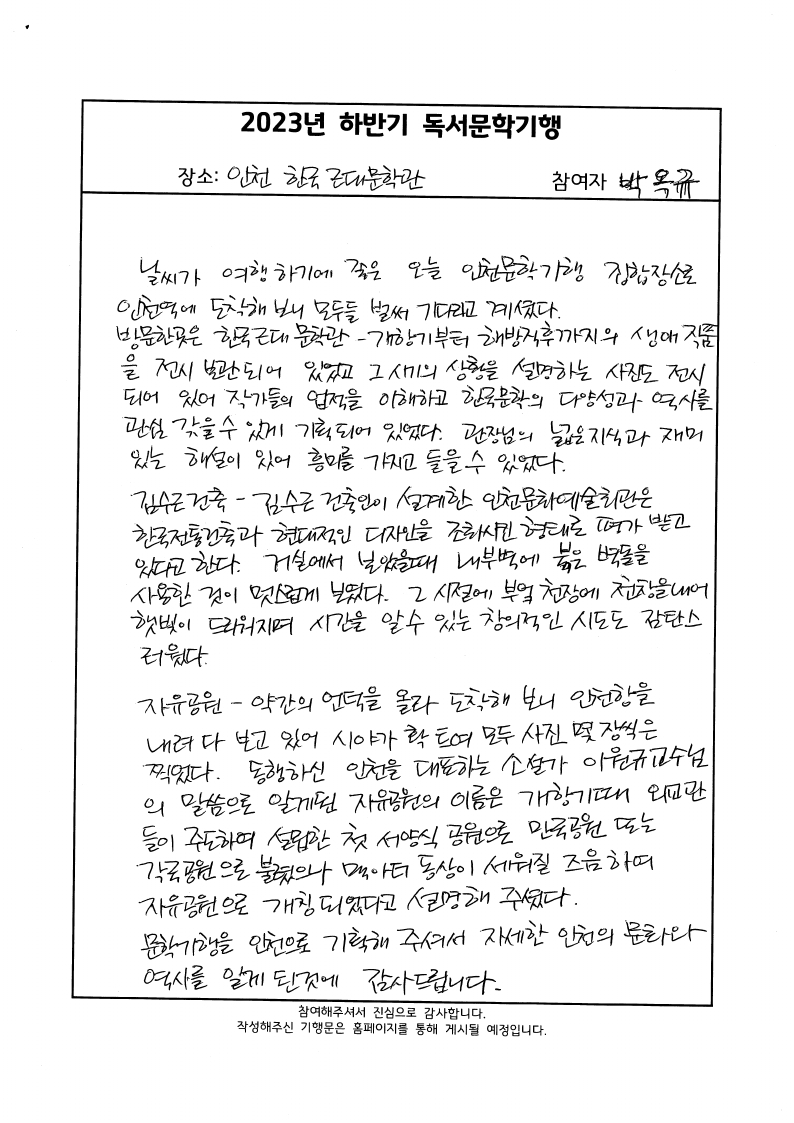 2023년 하반기 독서문학기행
장소: 인천 한국근대문학관 참여자 박옥규
날씨가 여행하기에 좋은 오늘 인천문학기행 집합장소로
인천역에 도착해 보니 모두들 벌써 기다리고 계셨다.
방문한곳은 한국근대문학관 - 개항기부터 해방직후까지의 생애 작품
을 전시 보관되어 있었고 그 시기의 상황을 설명하는 사진도 전시
되어 있어 작가들의 업적을 이해하고 한국문학의 다양성과 역사를
관심 갖을수 있게 기획되어 있었다. 관장님의 넓은지식과 재미
있는 해설이 있어 흥미를 가지고 들을수 있었다.
김수근건축 - 김수근 건축인이 설계한 인천문화예술회관은
한국전통건축과 현대적인 디자인을 조화시킨 형태로 평가 받고
있다고 한다. 거실에서 보았을때 내부벽에 붉은 벽돌을
사용한 것이 멋스럽게 보였다. 그 시절에 부엌 천장에 천창을내어
햇빛이 드리워지며 시간을 알 수 있는 창의적인 시도도 감탄스
러웠다.
자유공원 - 약간의 언덕을 올라 도착해 보니 인천항을
내려 다 보고 있어 시야가 확 트여 모두 사진 몇 장씩은
찍었다. 동행하신 인천을 대표하는 소설가 이원규교수님
의 말씀으로 알게된 자유공원의 이름은 개항기때 외교관
들이 주도하여 설립한 첫 서양식 공원으로 만국공원 또는
각국공원으로 불렸으나 맥아더 동상이 세워질 즈음하여
자유공원으로 개칭되었다고 설명해 주셨다.
문학기행을 인천으로 기획해 주셔서 자세한 인천의 문화와
역사를 알게 된것에 감사드립니다.
참여해주셔서 진심으로 감사합니다.
작성해주신 기행문은 홈페이지를 통해 게시될 예정입니다.